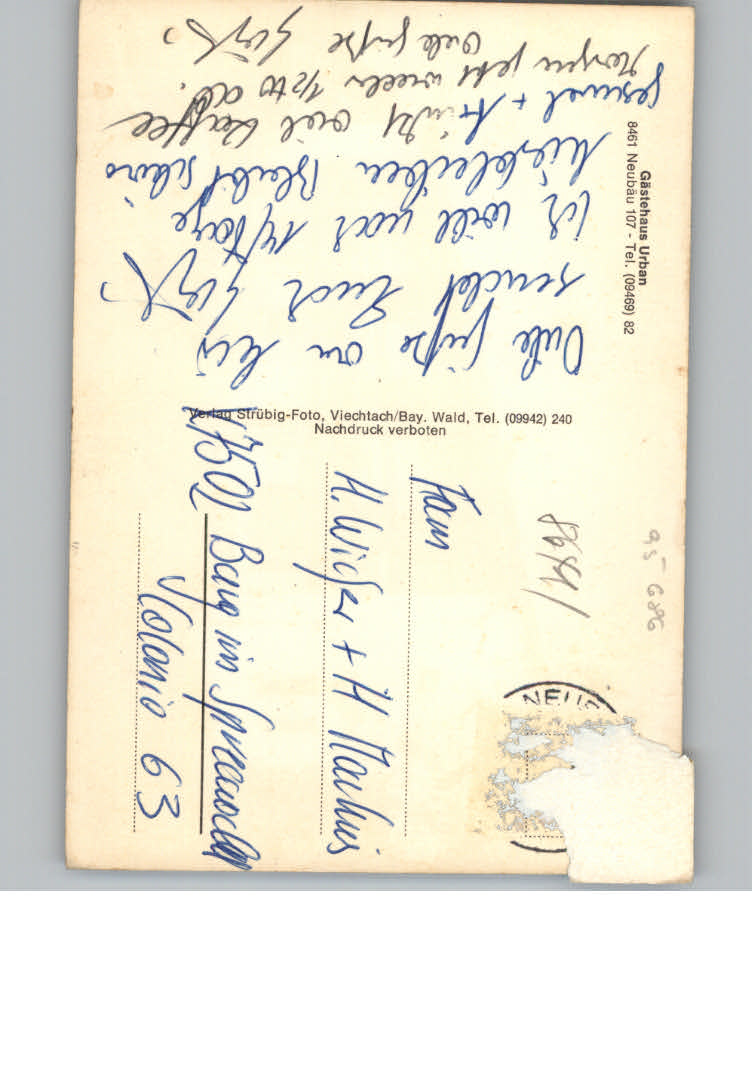 Gästehaus Urban
8461 Neubäu 107 - Tel. (09469) 82
Viele Grüße an
sendet Euch
Ich will noch 14 Tage
hierbleiben Bleibt schön
gesund + trinkt viel Kaffee
Morgen geht wieder 1/2 10 ab.
Viele Grüße
Verlag Strübig-Foto, Viechtach/Bay. Wald, Tel. (09942) 240
Nachdruck verboten
Fam
H. + H
7501 Burg im Spreewald
Kolonie 63
8641
9,5 686
NEUS